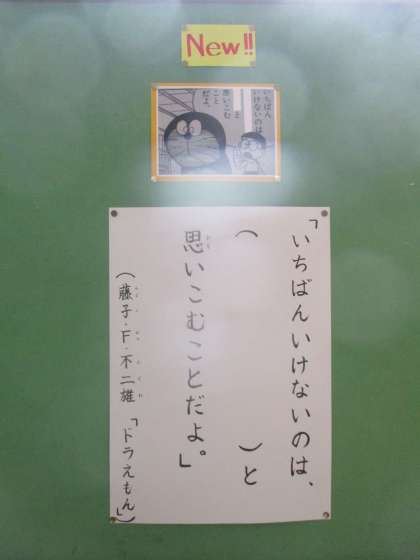 New!!
いちばん
いけないのは
と
思いこむ
こと
だよ。
「いちばんいけないのは、
(　　　　　　)と
思いこむことだよ。」
(藤子・F・不二雄「ドラえもん」)